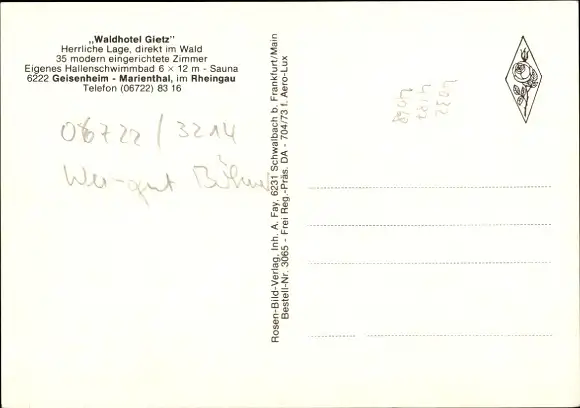 „Waldhotel Gietz"
Herrliche Lage, direkt im Wald
35 modern eingerichtete Zimmer
Eigenes Hallenschwimmbad 6 × 12 m - Sauna
6222 Geisenheim - Marienthal, im Rheingau
Telefon (06722) 83 16
06722 / 3214
Rosen-Bild-Verlag, Inh. A. Fay, 6231 Schwalbach b. Frankfurt/Main
Bestell-Nr. 3065 - Frei Reg.-Präs. DA - 704/73 f. Aero-Lux